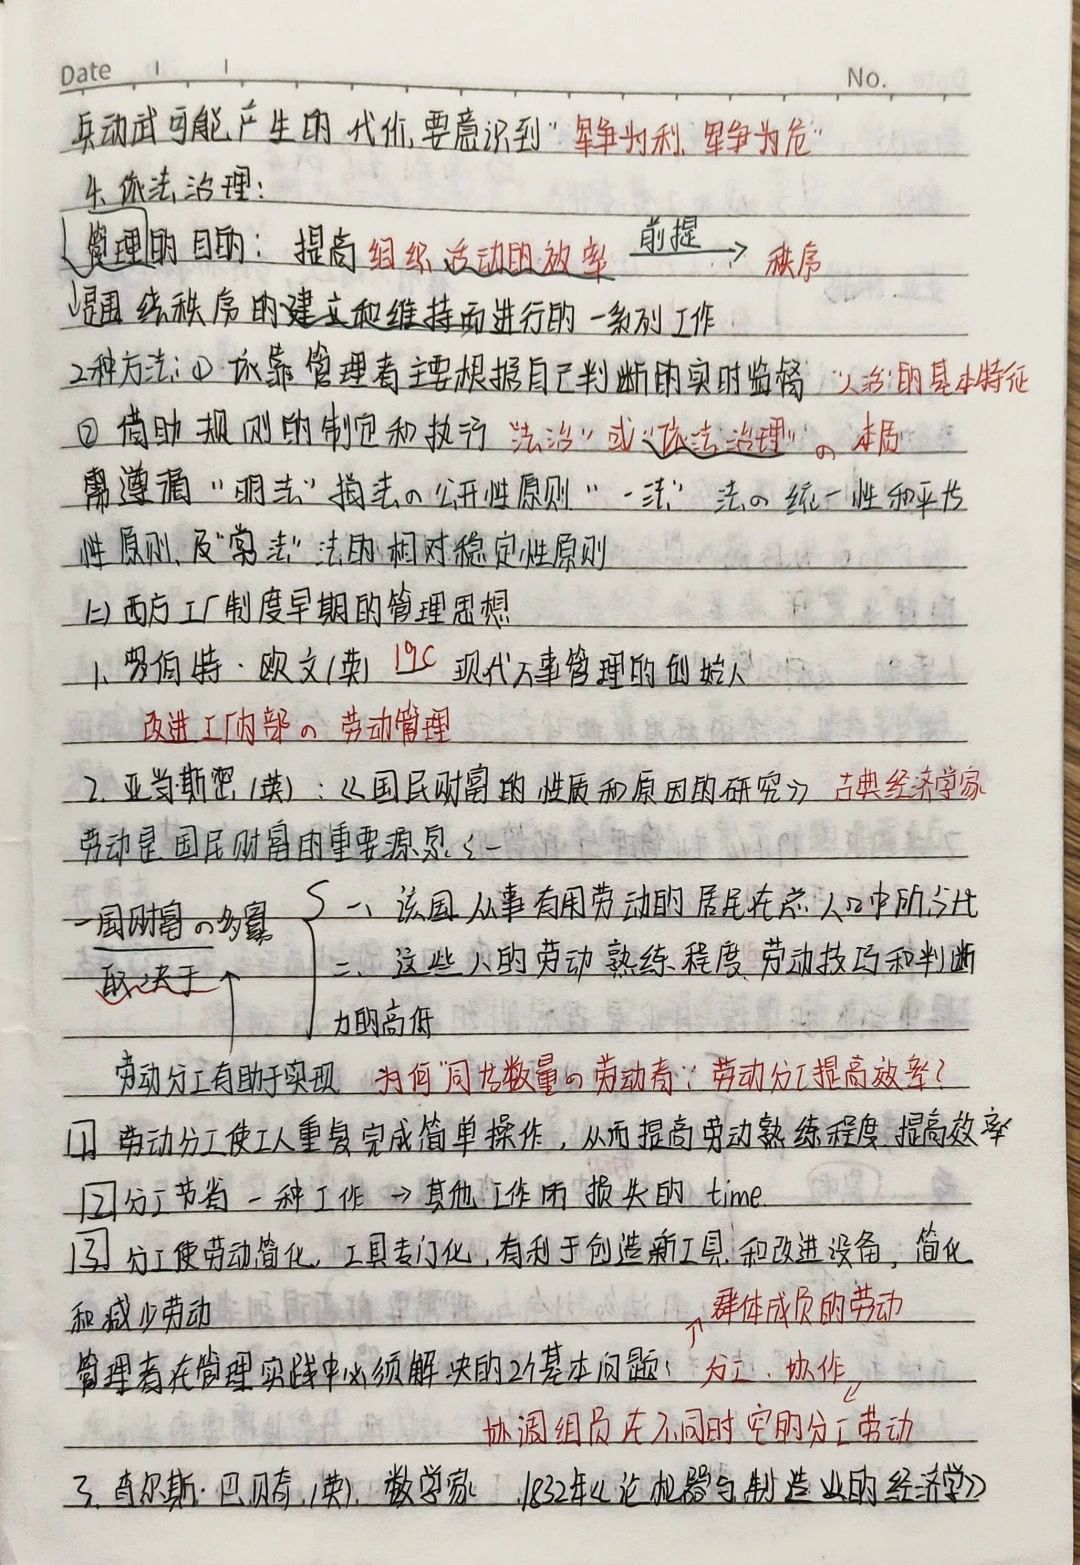 Date
No.
兵动武可能产生的代价,要意识到"军争为利,军争为危"
4.依法治理:
管理的目的: 提高组织活动的效率 前提→ 秩序
是围绕秩序的建立和维持而进行的一系列工作
2种方法:① 依靠管理者主要根据自己判断的实时监督 "人治"的基本特征
② 借助规则的制定和执行 "法治"或"依法治理"の本质
需遵循"明法"指法の公开性原则 "一法" 法の统一性和平等
性原则,及"常法"法的相对稳定性原则
(二)西方工厂制度早期的管理思想
1.罗伯特·欧文(英) 19C 现代人事管理的创始人
改进工厂内部の劳动管理
2.亚当·斯密(英):《国民财富的性质和原因的研究》 古典经济学家
劳动是国民财富的重要源泉之一
一、该国从事有用劳动的居民在总人口中所占比
一国财富の多寡
二、这些人的劳动熟练程度,劳动技巧和判断
取决于
力的高低
劳动分工有助于实现 为何"同等数量の劳动者":劳动分工提高效率?
[1] 劳动分工使工人重复完成简单操作,从而提高劳动熟练程度,提高效率
[2] 分工节省一种工作→其他工作所损失的time.
[3] 分工使劳动简化,工具专门化,有利于创造新工具和改进设备,简化
和减少劳动
群体成员的劳动
管理者在管理实践中必须解决的2个基本问题: 分工、协作
协调组员在不同时空的分工劳动
3.查尔斯·巴贝奇(英) 数学家 1832年《论机器与制造业的经济学》